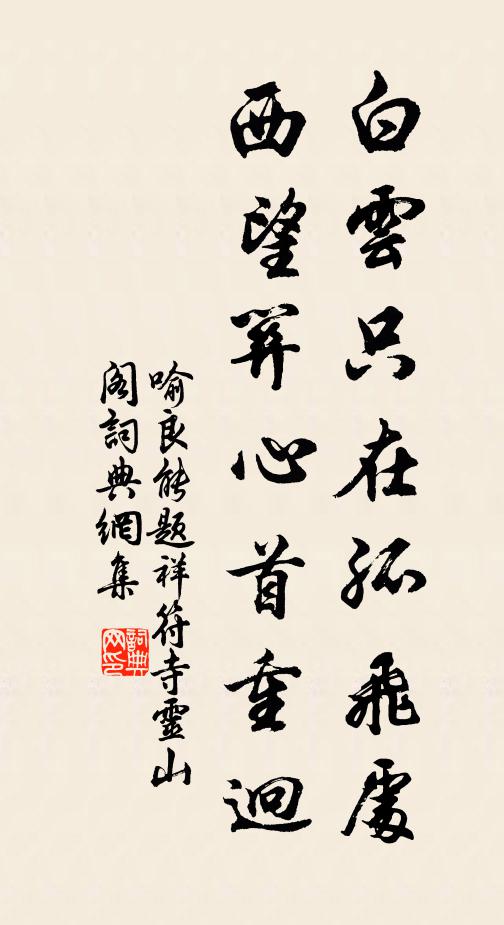 白雲只在孤飛處
西望羿心首重迴
喻良能題祥符寺靈山
閣詞典網集
詞典网印